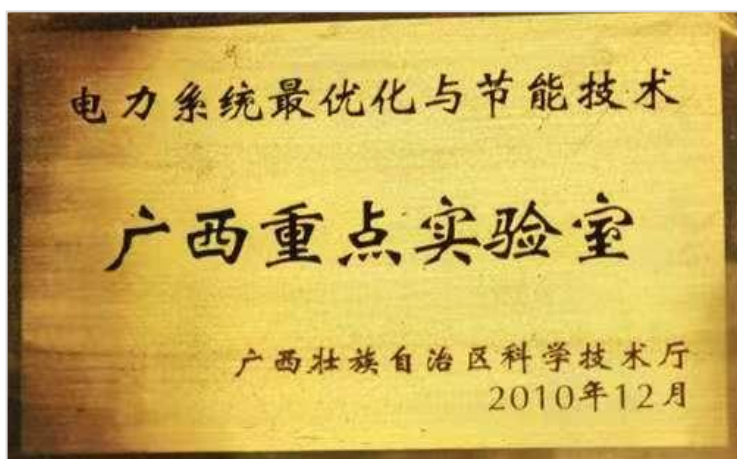 电力系统最优化与节能技术
广西重点实验室
广西壮族自治区科学技术厅
2010年12月